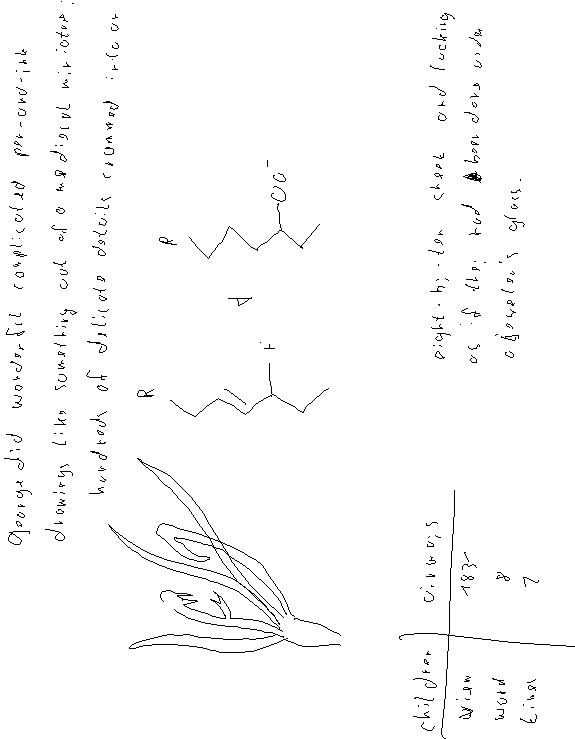 George did wonderful complicated pen-and-ink
drawings like something out of a medieval miniature:
hundreds of delicate details crammed into an
R
R
H
OO-
eight-by-ten sheet and looking
as if they had been done under
a jeweler's glass.
children
word 8
times 2